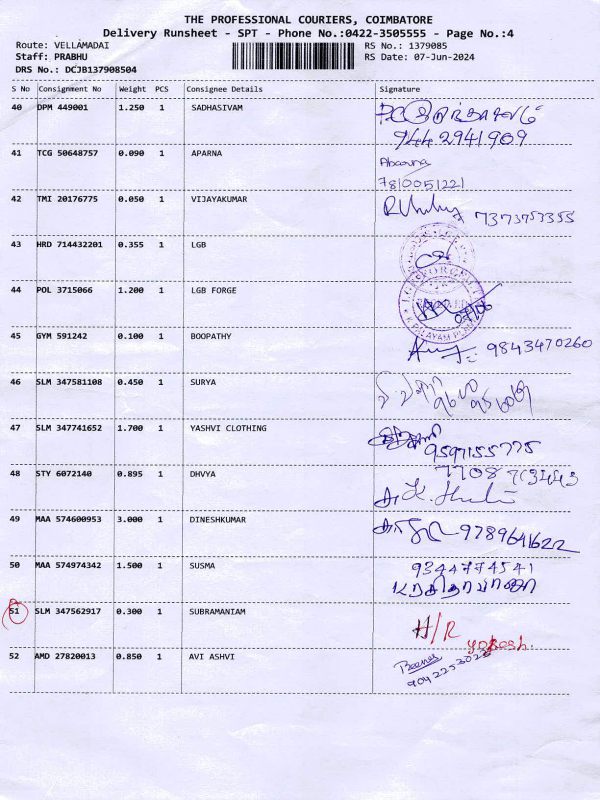 THE PROFESSIONAL COURIERS, COIMBATORE
Delivery Runsheet - SPT - Phone No.:0422-3505555 - Page No.:4
Route: VELLAMADAI RS No.: 1379085
Staff: PRABHU RS Date: 07-Jun-2024
DRS No.: DCJB137908504
S No Consignment No Weight PCS Consignee Details Signature
40 DPM 449001 1.250 1 SADHASIVAM
9442941909
41 TCG 50648757 0.090 1 APARNA Abarna
7810051221
42 TMI 20176775 0.050 1 VIJAYAKUMAR 7373753355
43 HRD 714432201 0.355 1 LGB
44 POL 3715066 1.200 1 LGB FORGE
45 GYM 591242 0.100 1 BOOPATHY 9843470260
46 SLM 347581108 0.450 1 SURYA
47 SLM 347741652 1.700 1 YASHVI CLOTHING
9597155775
48 STY 6072140 0.895 1 DHVYA
49 MAA 574600953 3.000 1 DINESHKUMAR 9789641622
50 MAA 574974342 1.500 1 SUSMA 9344774541
51 SLM 347562917 0.300 1 SUBRAMANIAM
H/R
52 AMD 27820013 0.850 1 AVI ASHVI